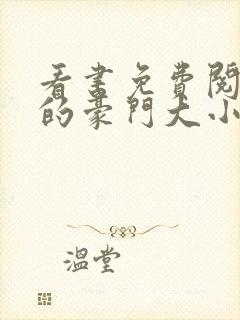 看書免費閱
的豪門大小
溫堂